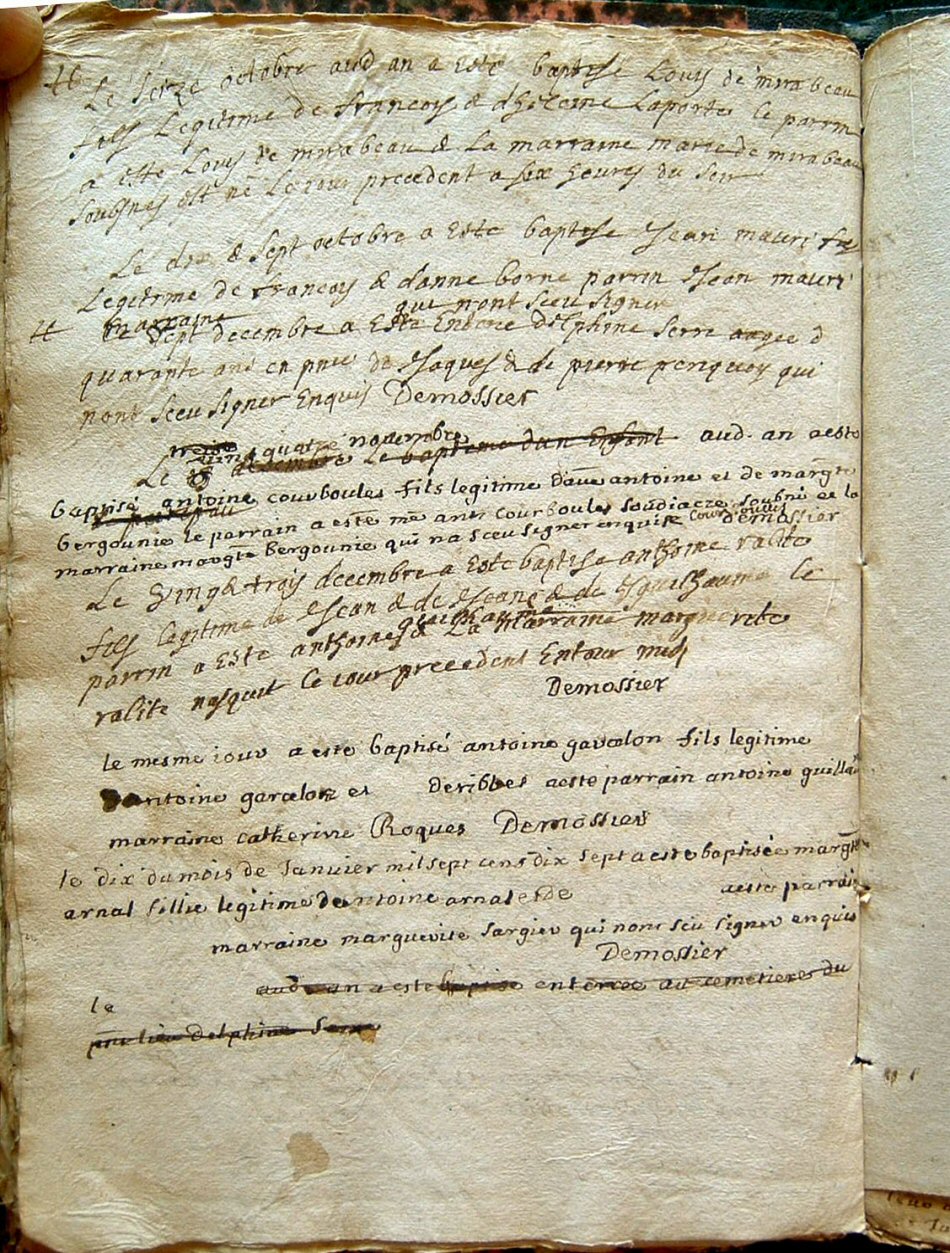 Le seize octobre aud an a esté baptise Louys de mirabeau
fils Legitime de francoys & dheleine Laporte le parrin
a esté Louys de mirabeau & La marraine marie de mirabeau
soubsnes est né Le iour precedent a six heures du soir
Le dix & sept octobre a esté baptise Jean mauri fils
Legitime de francoys & danne borne parrin Jean mauri
marraine qui nont sceu signer
Le sept decembre a esté Enterré delphine serre aagee d
quarante ans en pnce de Jaques & de pierre qui
nont sceu signer Enquis Demossier
quatre novembre
Le le bapteme dun Enfant aud. an a esté
baptisé antoine courboules fils legitime dave antoine et de margte
bergounie le parrain a esté me ant courboules soudiacre soubné et la
marraine margte bergounie qui na sceu signer enquise courboules demossier
Le Vingt & trois decembre a esté baptise anthoine ralite
fils legitime de Jean & de Jeane & de guilhaume Le
parrin a esté anthoine guilhaume & La marraine marguerite
ralite nasquit Le iour precedent Entour midi
Demossier
le mesme iour a esté baptisé antoine garcelon fils legitime
dantoine garcelon et deribbes a esté parrain antoine
marraine catherine Roques Demossier
le dix du mois de Janvier mil sept cens dix sept a esté baptisée margte
arnal fillie legitime dantoine arnal et de a esté parrain
marraine marguerite sargier qui nont seu signer enquis
Demossier
le aud an a esté baptisé enterrée au cemetieres du
pnt lieu Delphine Serre